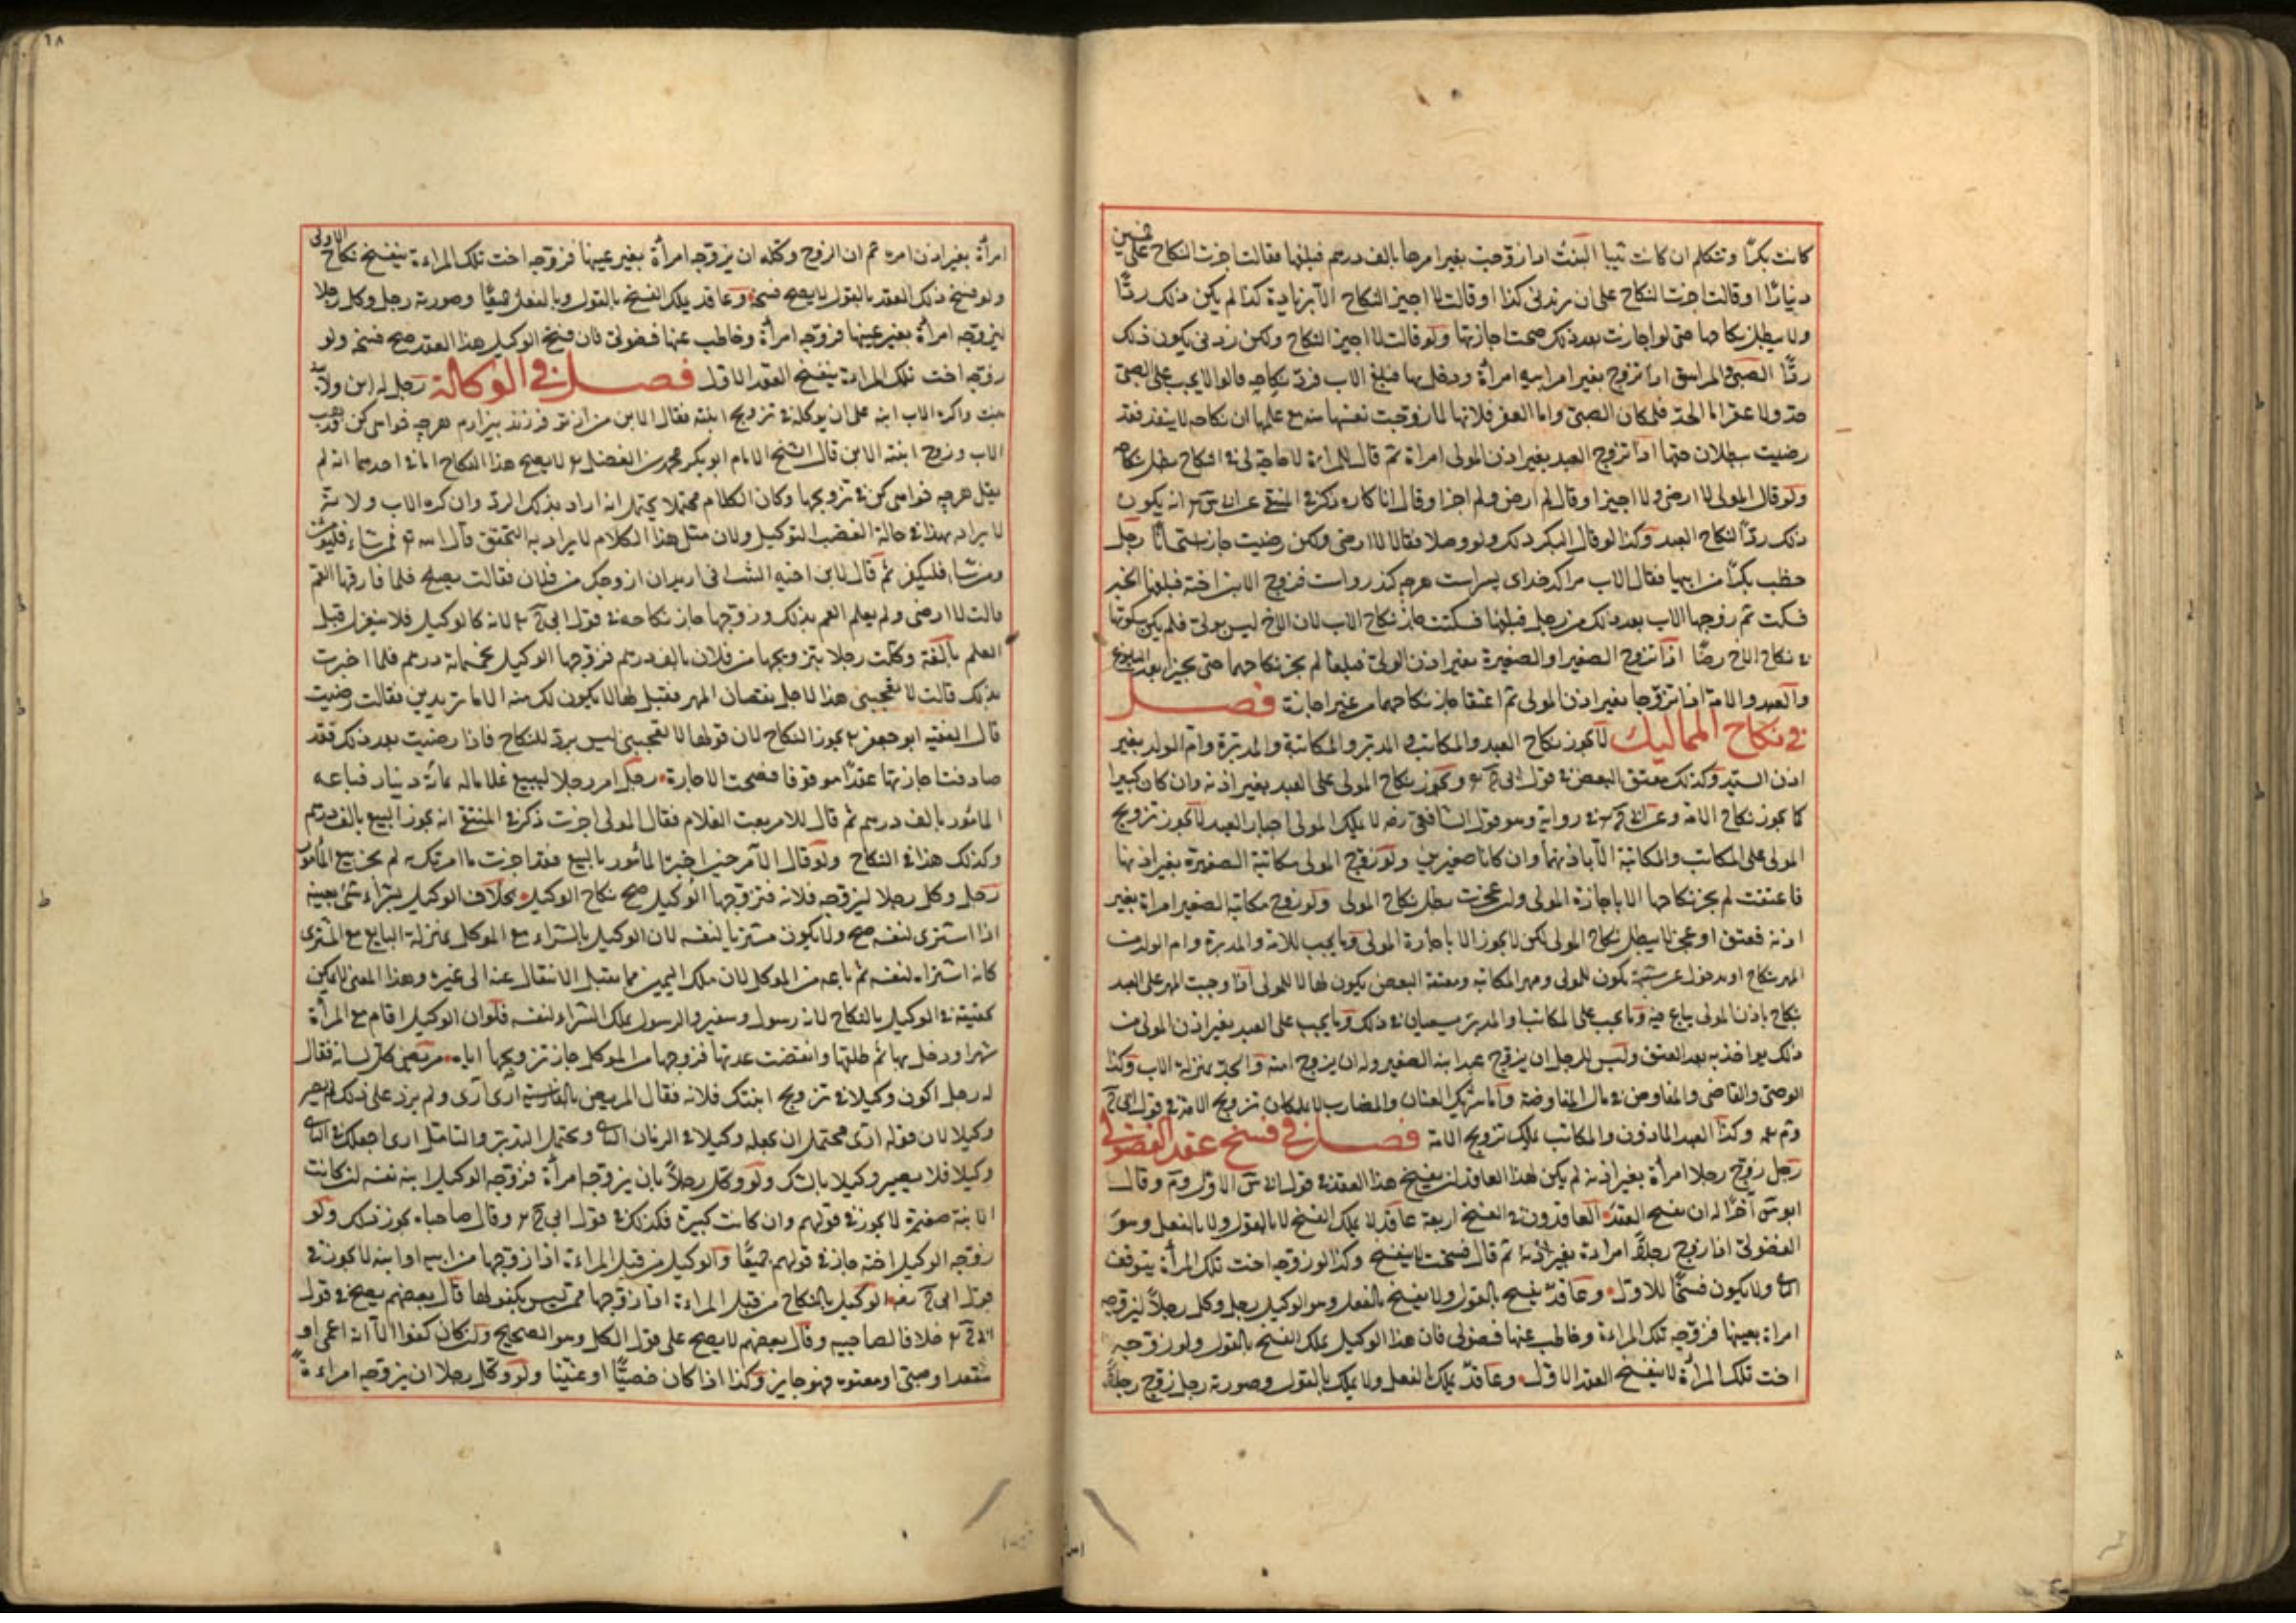 كانت بكرا وتتكلم ان كانت ثيبا البنت اذا زوجت بغير امرها بالف درهم فبلغها فقالت اجزت النكاح على خمسين
دينارا او قالت اجزت النكاح على ان يزيدنى كذا او قالت لا اجيز النكاح الا بزيادة كذا لم يكن ذلك ردا
ولا يبطل نكاحها حتى لو اجازت بعد ذلك صحت اجازتها ولو قالت لا اجيز النكاح ولكن زدنى يكون ذلك
ردا الصبى المراهق اذا تزوج بغير امر ابيه امرأة ودخل بها فبلغ الاب فرد نكاحه قالوا لا يجب على الصبى
حد ولا عقر اما الحد فلمكان الصبى واما العقر فلانها لما زوجت نفسها منه مع علمها ان نكاحه لا ينفذ فقد
رضيت ببطلان حقها اذا تزوج العبد بغير اذن المولى امرأة ثم قال للمراءة لا حاجة لى فى النكاح بطل نكاحه
ولو قال المولى لا ارضى ولا اجيز او قال لم ارض ولم اجز او قال انا كاره ذكر فى المنتقى عن انه يكون
ذلك ردا لنكاح العبد وكذا لو قال البكر ذلك ولو وصلا فقالا لا ارضى ولكن رضيت جاز استحسانا رجل
خطب بكرا من ابيها فقال الاب مرا كدخداى پسر است هرچه كند رواست فزوج الابن اخته فبلغها الخبر
فسكتت ثم زوجها الاب بعد ذلك من رجل فبلغها فسكتت جاز نكاح الاب لان الاخ ليس بولى فلم يكن سكوتها
فى نكاح الاخ رضا اذا تزوج الصغير او الصغيرة بغير اذن الولى فبلغا لم يجز نكاحهما حتى يجيزا بعد البلوغ
والعبد والامة اذا تزوجا بغير اذن المولى ثم اعتقا جاز نكاحهما من غير اجازة فصل
فى نكاح المماليك لا يجوز نكاح العبد والمكاتب والمدبر والمكاتبة والمدبرة وام الولد بغير
اذن السيد وكذلك معتق البعض فى قول ابى ح ويجوز نكاح المولى على العبد بغير اذنه وان كان كبيرا
كما يجوز نكاح الامة وعن ابى ح فى رواية وهو قول الشافعى رضه لا يملك المولى اجبار العبد لا يجوز تزويج
المولى على المكاتب والمكاتبة الا باذنهما وان كانا صغيرين ولو زوج المولى مكاتبة الصغيرة بغير اذنها
فاعتقت لم يجز نكاحها الا باجازة المولى ولو عجزت بطل نكاح المولى ولو زوج مكاتبه الصغير امراة بغير
اذنه فعتق او عجز لا يبطل نكاح المولى لكن لا يجوز الا باجازة المولى وما يجب للامة والمدبرة وام الولد من
المهر بنكاح او بدخول عن شبهة يكون للمولى ومهر المكاتبة ومعتقة البعض يكون لها لا للمولى اذا وجب المهر على العبد
بنكاح باذن المولى يباع فيه وما يجب على المكاتب او المدبر يسعيان فى ذلك وما يجب على العبد بغير اذن المولى من
ذلك يواخذ به بعد العتق وليس للرجل ان يزوج عبد ابنه الصغير وله ان يزوج امته والجد بمنزلة الاب وكذا
الوصى والقاضى والمفاوض فى مال المفاوضة واما شريك العنان والمضارب لا يملكان تزويج الامة فى قول ابى ح
وكذا العبد الماذون والمكاتب يملك تزويج الامة فصل فى فسخ عقد الفضولى
رجل زوج رجلا امرأة بغير اذنه لم يكن لهذا العاقد ان يفسخ هذا العقد فى قول الاول وقال
اخرا له ان يفسخ العقد العاقدون فى الفسخ اربعة عاقد لا يملك الفسخ لا بالقول ولا بالفعل وهو
الفضولى اذا زوج رجلا امراءة بغير اذنه ثم قال فسخت لا ينفسخ وكذا لو زوجه اخت تلك المرأة يتوقف
الثانى ولا يكون فسخا للاول وعاقد يفسخ بالقول ولا يفسخ بالفعل وهو الوكيل رجل وكل رجلا ليزوجه
امراة بعينها فزوجه تلك المراءة وخاطب عنها فضولى فان هذا الوكيل يملك الفسخ بالقول ولو زوجه
اخت تلك المرأة لا ينفسخ العقد الاول وعاقد يملك بالفعل ولا يملك بالقول وصورته رجل زوج رجلا
١٨
امرأة بغير اذن امره ثم ان الزوج وكله ان يزوجه امرأة بغير عينها فزوجه اخت تلك المراءة ينفسخ نكاح الاولى
ولو فسخ ذلك العقد بالقول لا يصح فسخه وعاقد يملك الفسخ بالقول وبالفعل جميعا وصورته رجل وكل رجلا
ليزوجه امرأة بغير عينها فزوجه امرأة وخاطب عنها فضولى فان فسخ الوكيل هذا العقد صح فسخه ولو
زوجه اخت تلك المراءة ينفسخ العقد الاول فصل فى الوكالة رجل له ابن ولابنه
بنت واكره الاب ابنه على ان يوكله فى تزويج ابنته فقال الابن من از تو فرزند بيزارم هرچه خواهى كن فذهب
الاب وزوج ابنة الابن قال الشيخ الامام ابو بكر محمد بن الفضل لا يصح هذا النكاح اما فى احدهما انه لم
يقل هرچه خواهى كن فى تزويجها وكان الكلام محتملا يحتمل انه اراد بذلك الرد وان كره الاب ولا
لا يراد بهذا فى حالة الغضب التوكيل ولان مثل هذا الكلام لا يراد به التحقيق قال الله تع فمن شاء فليؤمن
ومن شاء فليكفر ثم قال لابن اخيه الشاب انى اريد ان ازوجك من فلان فقالت يصلح فلما فارقها العم
قالت لا ارضى ولم يعلم العم بذلك وزوجها جاز نكاحه فى قول ابى ح لانه كالوكيل فلا ينعزل قبل
العلم بالغة وكلت رجلا بتزويجها من فلان بالف درهم فزوجها الوكيل بخمسمائة درهم فلما اخبرت
بذلك قالت لا يعجبنى هذا لاجل نقصان المهر فقيل لها لا يكون لك منه الا ما تريدين فقالت رضيت
قال الفقيه ابو جعفر يجوز النكاح لان قولها لا يعجبنى ليس برد للنكاح فاذا رضيت بعد ذلك فقد
صادفت اجازتها عقدا موقوفا فصحت الاجازة رجل امر رجلا ليبيع غلاما له بمائة دينار فباعه
المأمور بالف درهم ثم قال للامر بعت الغلام فقال المولى اجزت ذكر فى المنتقى انه يجوز البيع بالف درهم
وكذلك هذا فى النكاح ولو قال الآمر حين اخبره المأمور بالبيع فقد اجزت ما امرتك به لم يجز بيع المأمور
رجل وكل رجلا ليزوجه فلانة فتزوجها الوكيل صح نكاح الوكيل بخلاف الوكيل بشراء شئ بعينه
اذا اشترى لنفسه صح ولا يكون مشتريا لنفسه لان الوكيل بالشراء مع الموكل بمنزلة البايع مع المشترى
كانه اشتراه لنفسه ثم باعه من الموكل لان ملك اليمين مما يقبل الانتقال عنه الى غيره وهذا المعنى لا يمكن
تحقيقه فى الوكيل بالنكاح لانه رسول وسفير والرسول يملك الشراء لنفسه فلو ان الوكيل اقام مع المرأة
شهرا ودخل بها ثم طلقها وانقضت عدتها فزوجها من الموكل جاز تزويجها اياه مريض كل لسانه فقال
له رجل اكون وكيلا فى تزويج ابنتك فلانة فقال المريض بالفارسية آرى آرى ولم يزد على ذلك لم يصر
وكيلا لان قوله ارى محتمل ان يجعله وكيلا فى الزمان الثانى ويحتمل التدبر والتامل ارى اجعلك فى الثانى
وكيلا فلا يصير وكيلا بالشك ولو وكل رجلا بان يزوجه امرأة فزوجه الوكيل ابنة نفسه ان كانت
الابنة صغيرة لا يجوز فى قولهم وان كانت كبيرة فكذلك فى قول ابى ح وقال صاحباه يجوز ذلك ولو
زوجه الوكيل اخته جاز فى قولهم جميعا والوكيل من قبل المراءة اذا زوجها من ابيه او ابنه لا يجوز فى
قول ابى ح الوكيل بالنكاح من قبل المراءة اذا زوجها ممن ليس بكفو لها قال بعضهم يصح فى قول
ابى ح خلافا لصاحبيه وقال بعضهم لا يصح على قول الكل وهو الصحيح وان كان كفوا الا انه اعمى او
مقعد او صبى او معتوه فهو جايز وكذا اذا كان خصيا او عنينا ولو وكل رجلا ان يزوجه امراءة